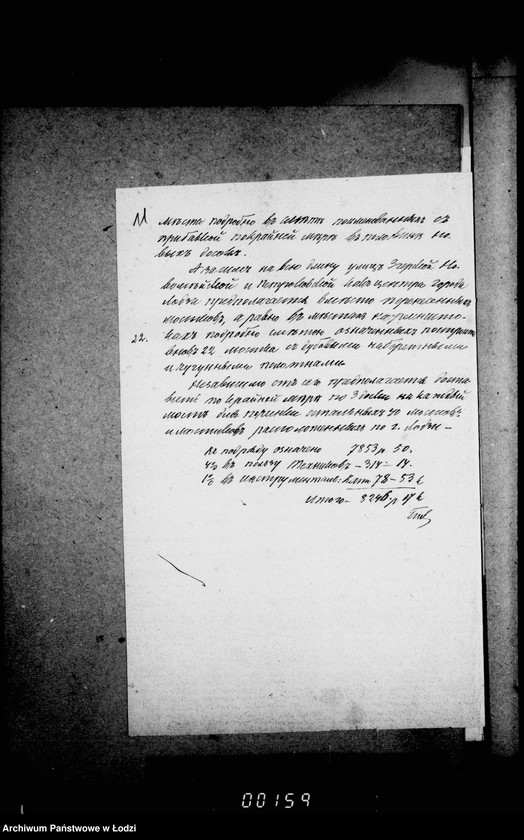 11 места подробно въ смѣтѣ поименованныхъ съ
прибавкой покрайней мѣрѣ въ половинѣ но-
выхъ досокъ.
А затѣмъ на всю длину улицъ Згерской Но-
воместской и Петроковской какъ центра города
Лодзи предполагается вмѣсто переносныхъ
мостковъ, а равно въ мѣстахъ
подробно смѣтою означенныхъ построить
22. вновь 22 мостика съ дубовыми
и чугунными полотнами.
Независимо отъ сего предполагается доста-
вить по крайней мѣрѣ по 3 доски на каждый
мостъ для починки остальныхъ 40 мостовъ
и мостиковъ расположенныхъ по г. Лодзи —
къ подряду означено 7853 р 50.
4% въ пользу Техниковъ — 314 - 14.
1% въ инструментал. 78 - 53 к
Итого — 8246 р 17 к
00159
Archiwum Państwowe w Łodzi